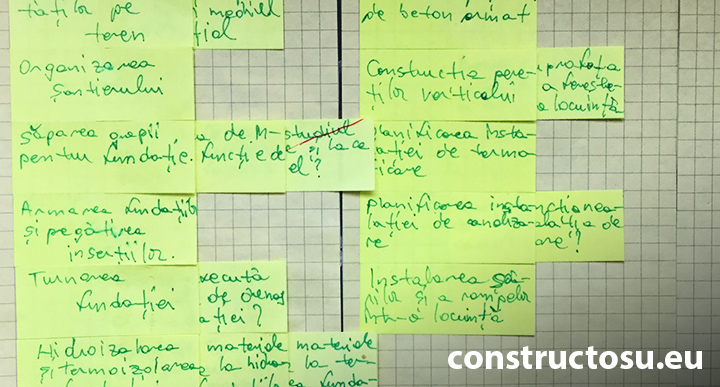 taților pe
teren
i mediul
țial
Organizarea
șantierului
săparea gropii
pentru fundație.
a de M-studiul
funcție de și la ce
el?
Armarea fundațiilor
și pegătirea
insertiilor.
Turnarea
fundației
xecută
de drenaj
ației?
Hidroizolarea
și termoizolarea
materiale materiale
la hidroi la ter-
de beton armat
Constructia pere-
ților verticali
prafața
a ferestre
a locuință
planificarea insta-
lației de termo
ficare
planificarea instanctionea-
lației de canaliza
ția de
re
are?
Instalarea scă-
rilor și a rampelor
într-o locuință
constructosu.eu